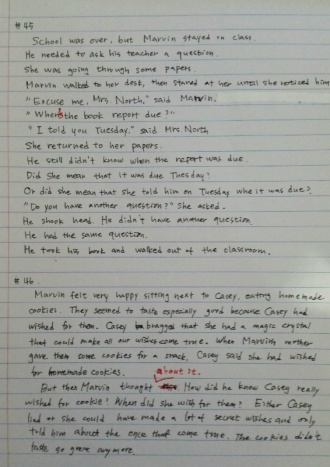 #45
School was over, but Marvin stayed on class.
He needed to ask his teacher a question.
She was going through some papers.
Marvin walked to her desk, then stared at her until she noticed him
"Excuse me, Mrs. North," said Marvin.
"When's the book report due?"
"I told you Tuesday," said Mrs. North
She returned to her papers.
He still didn't know when the report was due.
Did she mean that it was due Tuesday?
Or did she mean that she told him on Tuesday whe it was due?
"Do you have another question?" She asked.
He shook head. He didn't have another question
He had the same question.
He took his book and walked out of the classroom.
#46
Marvin felt very happy sitting next to Casey, eating homemade
cookies. They seemed to taste especially good because Casey had
wished for them. Casey bragges that she had a magic crystal
that could make all our wishes come true. When Marvin's mother
gave them some cookies for a snack, Casey said she had wished
for homemade cookies.
about it.
But then Marvin thought How did he know Casey really
wished for cookie? When did she wish for them? Either Casey
lied or she could have made a lot of secret wishes and only
told him about the once that come true. The cookies didn't
taste so great anymore.